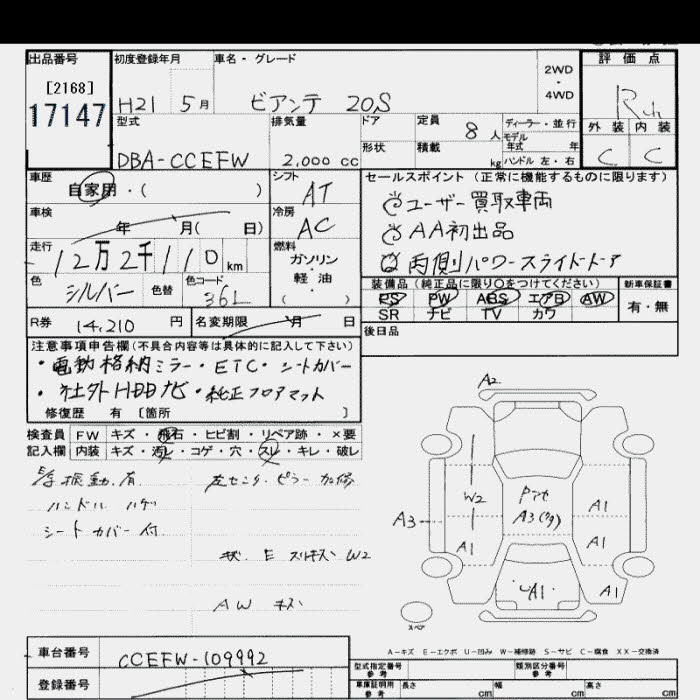 出品番号 初度登録年月 車名・グレード 2WD ・ 4WD 評価点
[2168]
17147
H21 5月 ビアンテ 20S
型式 排気量 ドア 定員 8人 ディーラー・並行 外装 内装
モデル年式 年
形状 積載 kg ハンドル 左・右
DBA-CCEFW 2,000cc C C
車歴 シフト セールスポイント(正常に機能するものに限ります)
自家用・( ) AT ユーザー買取車両
車検 冷房 AA初出品
年 月( 日) AC
走行 燃料 両側パワースライドドア
12万2千110km ガソリン・軽油・( )
色 色替 色コード 装備品(純正品に限り○をつけてください) 新車保証書
シルバー 36L PS PW ABS エアB AW 有・無
SR ナビ TV カワ
R券 14,210円 名変期限 月 日 後日品
注意事項申告欄(不具合内容等は具体的に記入して下さい)
・電動格納ミラー・ETC・シートカバー
・社外HDDナビ・純正フロアマット
修復歴 有 [箇所 ]
検査員記入欄 FW キズ・飛石・ヒビ割・リペア跡・×要
内装 キズ・汚レ・コゲ・穴・スレ・キレ・破レ
振動有 左センターピラー 加修
ハンドル ハゲ
シートカバー付
W2
AW キズ
A2
W2
A3
A1
A1
A1
A1
A1
スペア
A-キズ E-エクボ U-凹み W-補修跡 S-サビ C-腐食 XX-交換済
車台番号 CCEFW-109992
登録番号
型式指定番号 参考 類別区分番号 参考
車庫証明用 参考 長さ cm 幅 cm 高さ cm